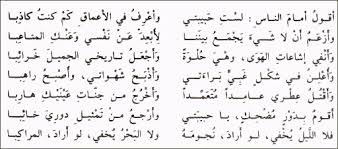 أقولُ أمامَ الناسِ : لستِ حبيبتي    وأعْرِفُ في الأعماقِ كمْ كنتُ كاذِبا
وأزْعُمُ أنْ لا شيءَ يَجْمَعُ بيننا    لأُبْعِدَ عنْ نَفْسي وعَنْكِ المتاعِبا
وأنْفي إشاعاتِ الهَوَى، وهي حُلْوَةٌ    وأجْعَلُ تاريخي الجميلَ خرائبا
وأُعْلِنُ في شكلٍ غبيٍّ براءتي    وأذْبَحُ شَهْواتي، وأُصْبِحُ راهِبا
وأقْتُلُ عِطْري عامِداً مُتَعَمِّداً    وأخْرُجُ من جنّاتِ عَيْنَيْكِ هارِبا
أقومُ بدَوْرٍ مُضْحِكٍ، يا حبيبتي    وأرجعُ من تَمْثيلِ دوري خائِبا
فلا الليلُ يُخْفي، لو أرادَ، نجومَهُ    ولا البَحْرُ يُخْفي، لو أرادَ، المراكِبا